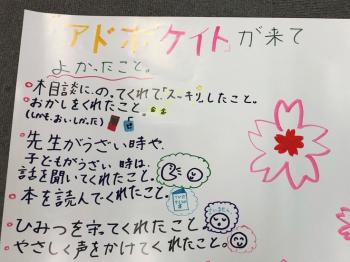 「アドボケイト」が来て
よかったこと。
相談に、のってくれて「スッキリ」したこと。
おかしをくれたこと。
(しかも、おいしかった)
先生がうざい時や、
子どもがうざい時は、
話を聞いてくれたこと。
本を読んでくれたこと。
ひみつを守ってくれたこと。
やさしく声をかけてくれたこと。